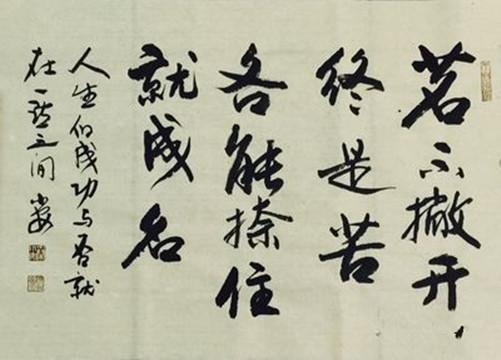 若不撇开
终是苦
各能捺住
就成名
人生的成功与否就
在一点之间